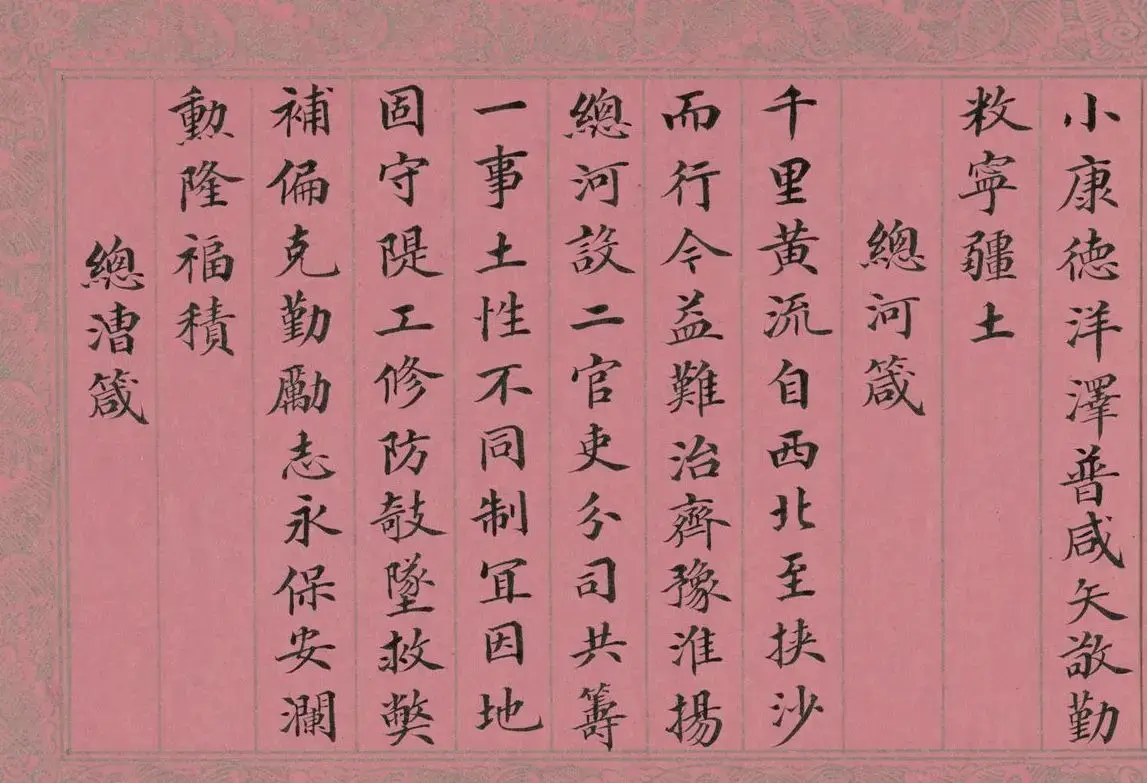 小康德洋澤普咸矢敬勤
敉寧疆土
總河箴
千里黃流自西北至挾沙
而行令益難治齊豫淮揚
總河設二官吏分司共籌
一事土性不同制宜因地
固守隄工修防攲墜救獘
補偏克勤勵志永保安瀾
勲隆福積
總漕箴